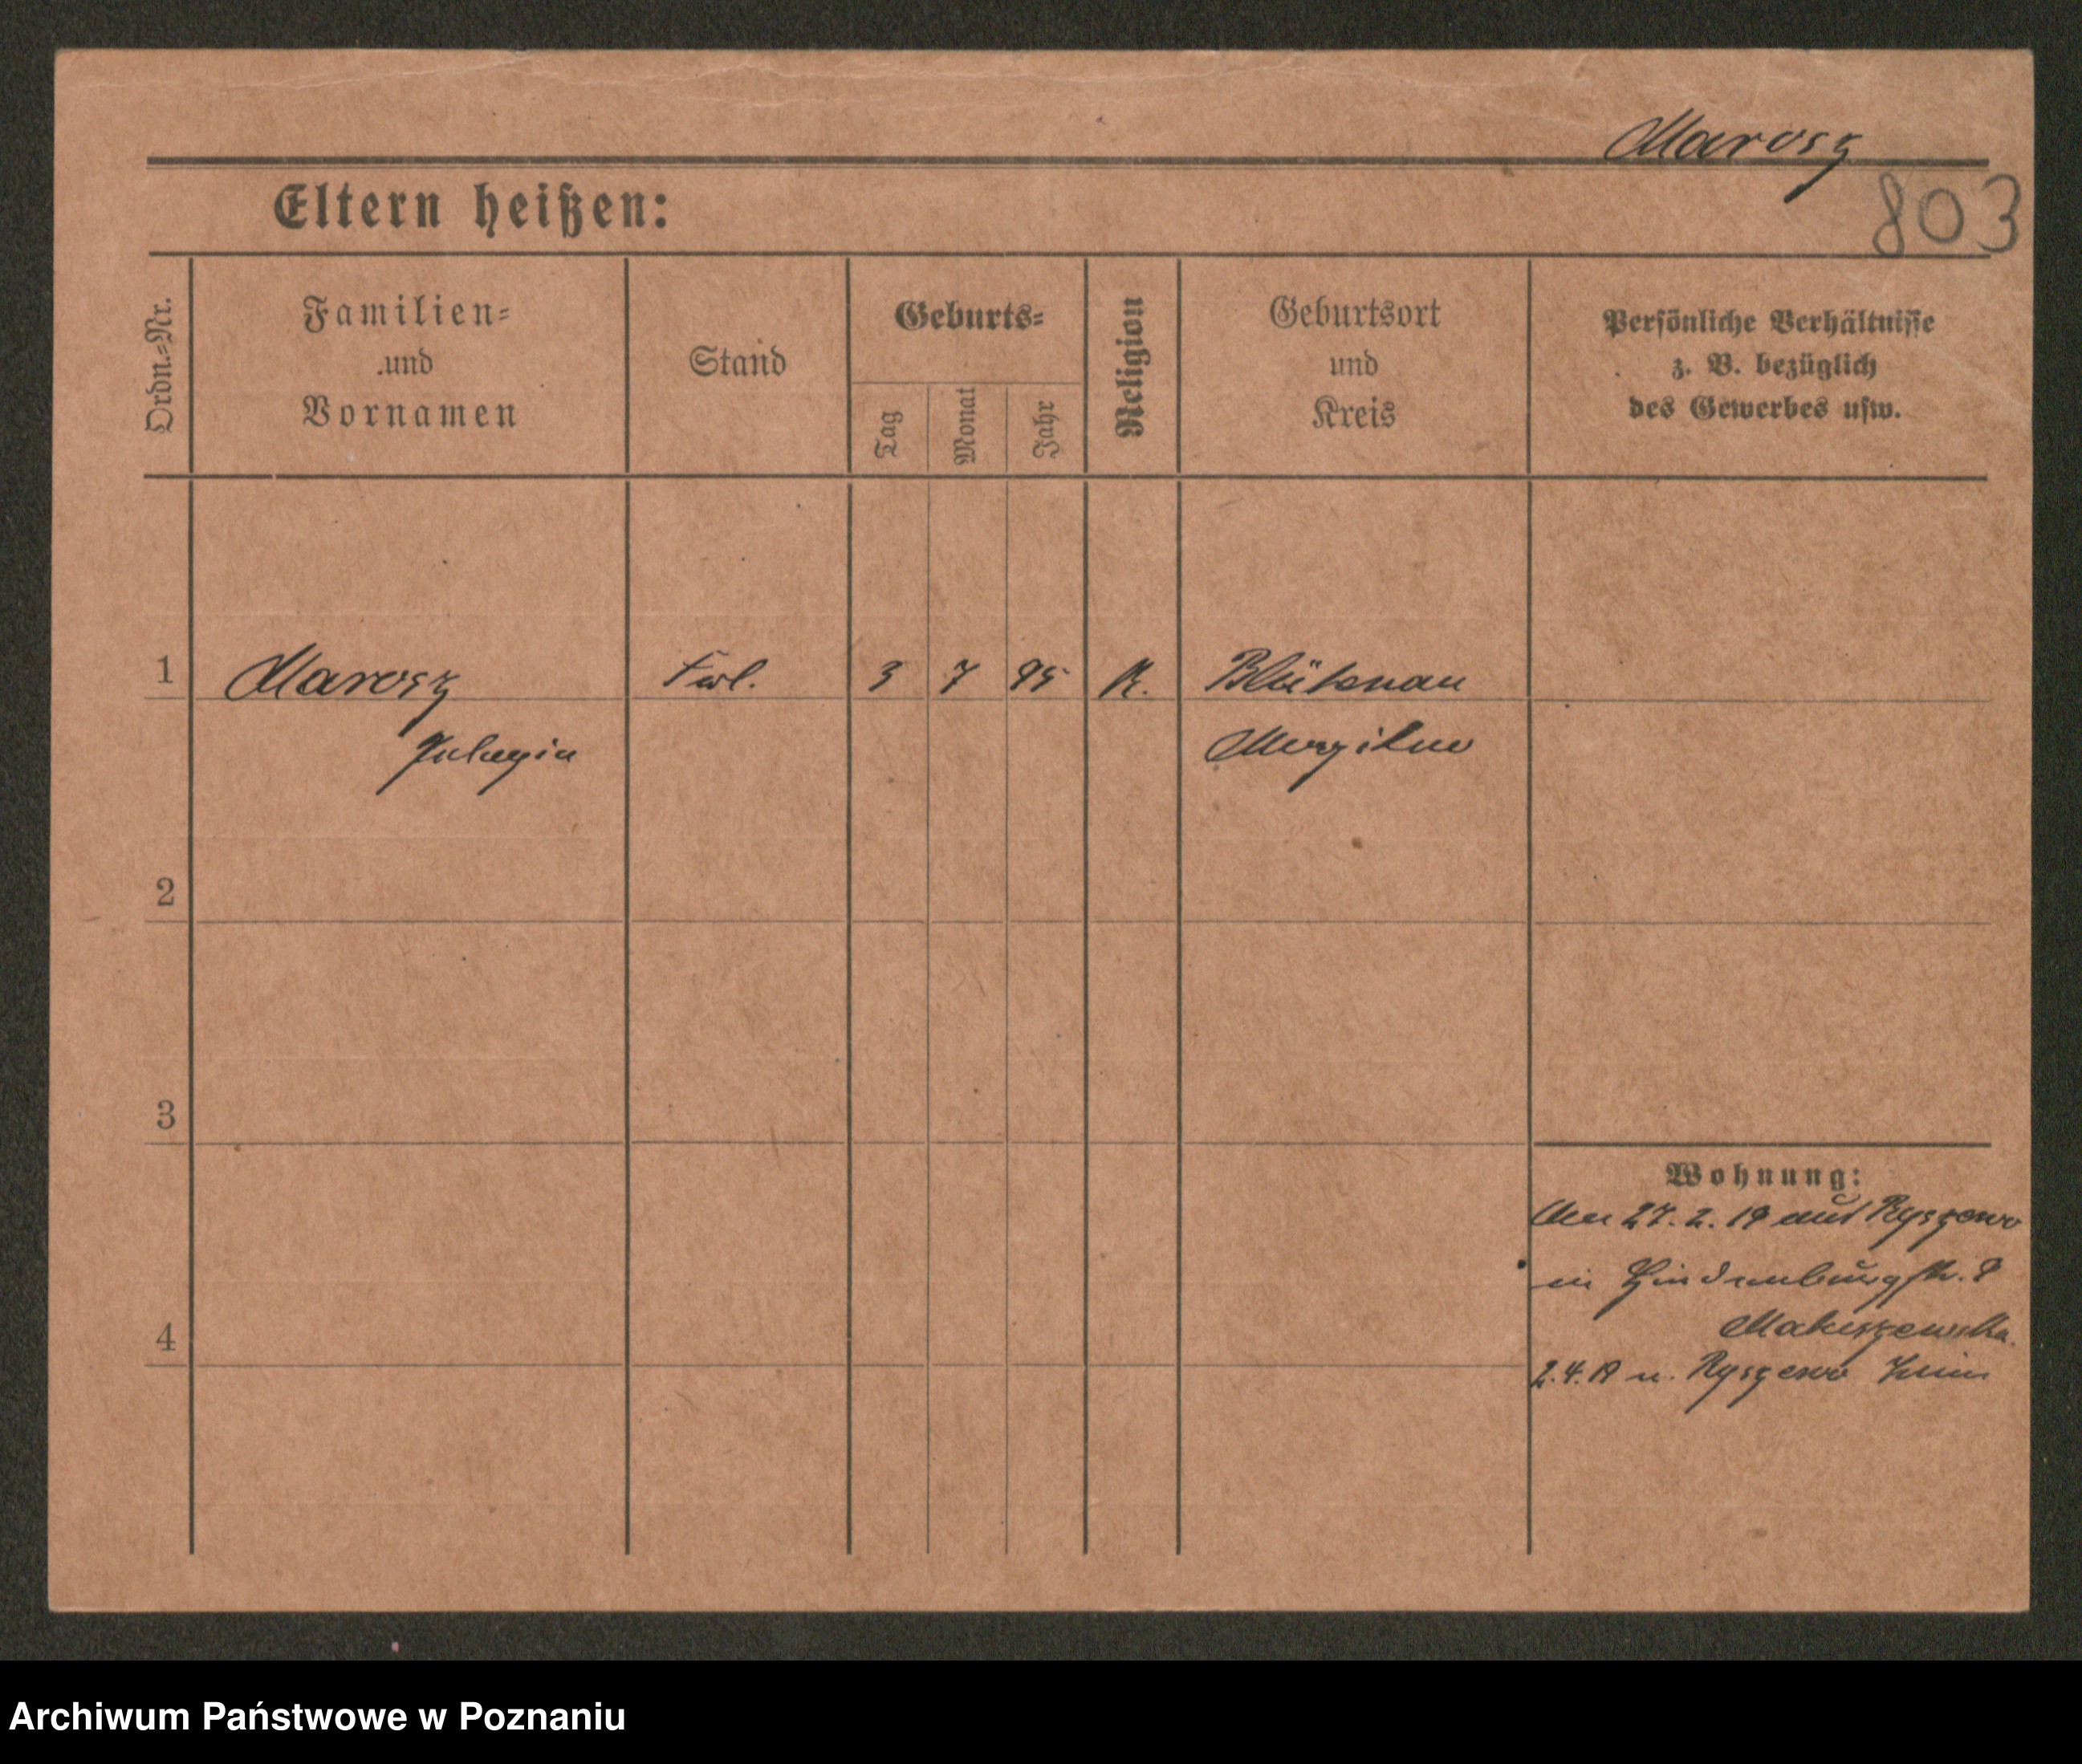 Marosz
803
Eltern heißen:
Ordn.=Nr.
Familien=
und
Vornamen
Stand
Geburts=
Tag
Monat
Jahr
Religion
Geburtsort
und
Kreis
Persönliche Verhältnisse
z. B. bezüglich
des Gewerbes usw.
1 Marosz Frl. 3 7 95 K. Blütenau
Pelagia Mogilno
2
3
4
Wohnung:
Am 27. 2. 19 aus Ryszewo
in Hindenburgstr. 8
2.4.19 n. Ryszewo
Archiwum Państwowe w Poznaniu